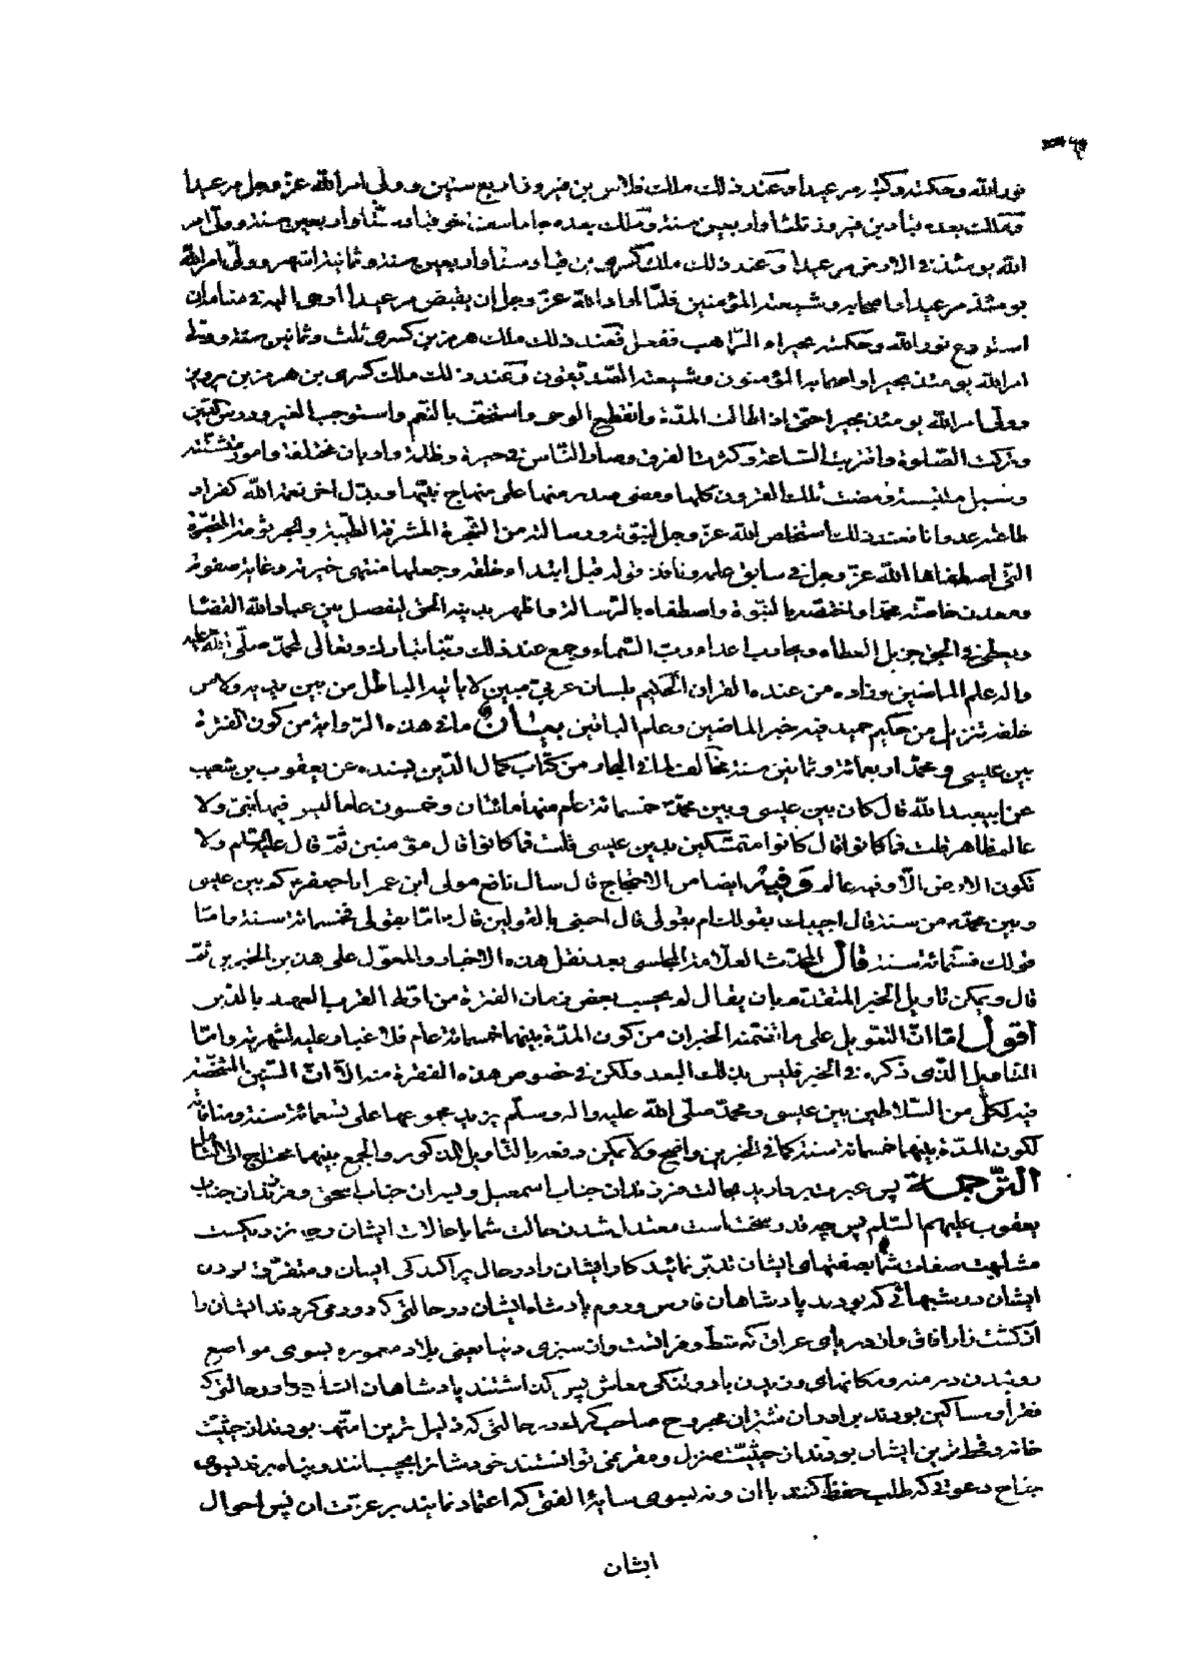 نور الله وحكمته وكتبه مرعيدا وعند ذلك ملك فلاس بن فيروز اربع سنين وولى امر الله عز وجل مرعيدا
وملك بعده قباد بن فيروز ثلثا واربعين سنة وملك بعده جاماسف اخو قباد ستا واربعين سنة وولى امر
الله يومئذ في الارض مرعيدا وعند ذلك ملك كسرى بن قباد ستا واربعين سنة وثمانية اشهر وولى امر الله
يومئذ مرعيدا واصحابه وشيعته المؤمنين فلما اراد الله عز وجل ان يقبض مرعيدا اوحى اليه في منامه ان
استودع نور الله وحكمته بحيراء الراهب ففعل فعند ذلك ملك هرمز بن كسرى ثلث وثمانين سنة وولى
امر الله يومئذ بحيرا واصحابه المؤمنون وشيعته الصديقون وعند ذلك ملك كسرى بن هرمز بن پرويز
وولى امر الله يومئذ بحيرا حتى اذا طالت المدة وانقطع الوحى واستخف بالنعم واستوجب الغير ودرس الدين
وتركت الصلوة واقتربت الساعة وكثرت الفرق وصار الناس في حيرة وظلمة واديان مختلفة وامور متشتتة
وسبل ملتبسة ومضت تلك القرون كلها ومضى صدر منها على منهاج نبيها وبدل اخر نعمة الله كفرا و
طاعته عدوانا فعند ذلك استخلص الله عز وجل لنبوته ورسالته من الشجرة المشرفة الطيبة والجرثومة المتخيرة
التى اصطفاها الله عز وجل في سابق علمه ونافذ قوله قبل ابتداء خلقه وجعلها منتهى خيرته وغاية صفوته
ومعدن خاصته محمدا واختصه بالنبوة واصطفاه بالرسالة واظهر بدينه الحق ليفصل بين عباد الله القضاء
ويعطى في الحق جزيل العطاء ويحارب اعداء رب السماء وجمع عند ذلك ربنا تبارك وتعالى لمحمد صلى الله عليه
واله علم الماضين وزاده من عنده القران الحكيم بلسان عربى مبين لا ياتيه الباطل من بين يديه ولا من
خلفه تنزيل من حكيم حميد فيه خبر الماضين وعلم الباقين بيان ما في هذه الرواية من كون الفترة
بين عيسى و محمد اربعمائة وثمانين سنة مخالف لما في البحار من كتاب كمال الدين بسنده عن يعقوب بن شعيب
عن ابيعبد الله قال كان بين عيسى وبين محمد خمسمائة عام منها مائتان وخمسون عاما ليس فيها نبى ولا
عالم ظاهر قلت فما كانوا قال كانوا متمسكين بدين عيسى قلت فما كانوا قال مؤمنين ثم قال عليه السلم ولا
تكون الارض الا وفيها عالم وفيه ايضا من الاحتجاج قال سال نافع مولى ابن عمر ابا جعفر كم بين عيسى
وبين محمد من سنة قال اجيبك بقولك ام بقولى قال اجبنى بالقولين قال اما بقولى فخمسمائة سنة واما
قولك فستمائة سنة قال المحدث العلامة المجلسى بعد نقل هذه الاخبار والمعول على هذين الخبرين ثم
قال ويمكن تاويل الخبر المتقدم بان يقال لم يحسب بعض زمان الفترة من اوله القرب العهد بالدين
اقول اما ان التعويل على ما تضمنه الخبران من كون المدة بينهما خمسمائة عام فلا غبار عليه لشهرته واما
التاويل الذى ذكره في الخبر فليس بذلك البعد ولكن في خصوص هذه الفقرة منه الا ان السنين المشخصة
فيه لكل من السلاطين بين عيسى ومحمد صلى الله عليه واله وسلم يزيد مجموعها على تسعمائة سنة ومنافاته
لكون المدة بينهما خمسمائة سنة كما في الخبرين واضح ولا يمكن دفعه بالتاويل المذكور والجمع بينهما محتاج الى التامل
الترجمة پس عبرت برداريد بحالت فرزندان جناب اسمعيل و پسران جناب اسحق و فرزندان جناب
يعقوب عليهم السلم پس چه قدر سخت است معتدل شدن حالت شما با حالات ايشان وچه نزديكست
مشابهت صفات شما بصفتهاى ايشان تدبر نمائيد كار ايشان را در حال پراكندكى ايشان و متفرق بودن
ايشان در شبهائى كه بودند پادشاهان فارس و روم پادشاه ايشان در حالتى كه دور مى كردند ايشان را
از كشت زار افاق واز درياى عراق كه شط و فراتست واز سبزى دنيا يعنى بلاد معموره بسوى مواضع
روئيدن درمنه ومكانهاى وزيدن باد و تنكى معاش پس كذاشتند پادشاهان ايشان را در حالتى كه
فقرا و مساكين بودند برادران شتران مجروح صاحب كرك در حالتى كه ذليل ترين امتها بودند از حيثيت
خانه وقحط ترين ايشان بودند از حيثيت منزل و مقر نمى توانستند خودشانرا بچسبانند و پناه برند بسوى
جناح دعوتى كه طلب حفظ كنند باان ونه بسوى سايۀ الفتى كه اعتماد نمايند بر عزت ان پس احوال
ايشان